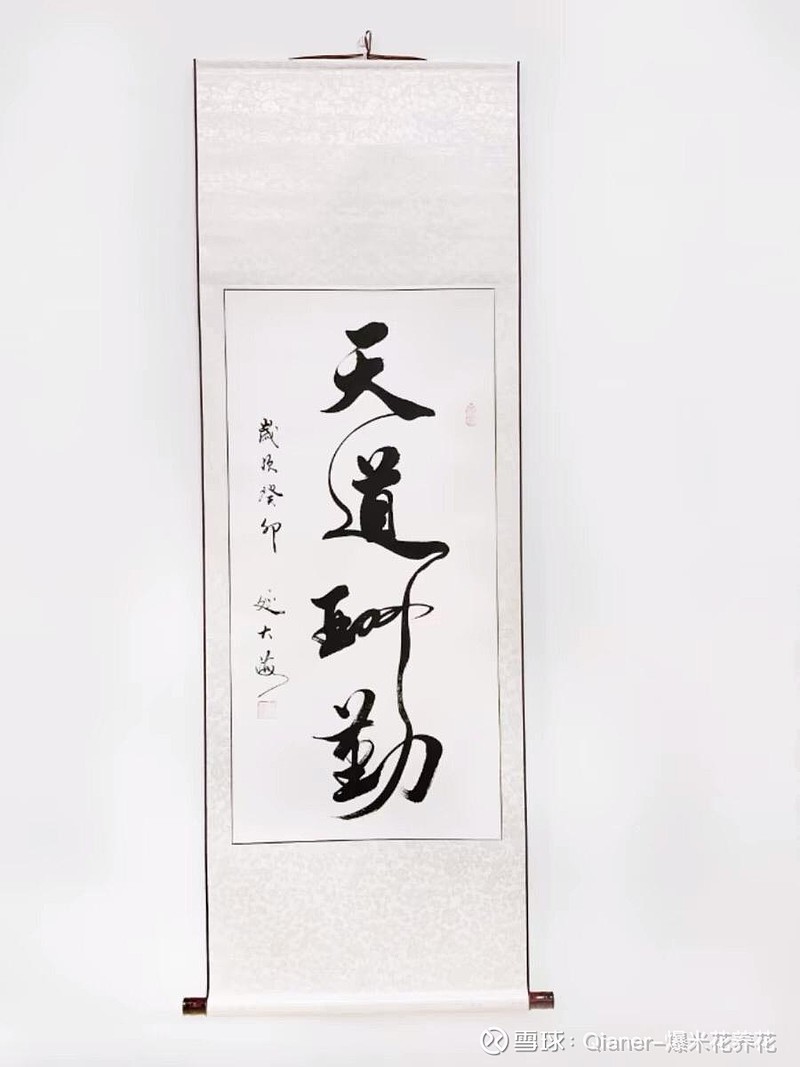 天道酬勤
歲次癸卯
大海
雪球：Qianer-爆米花养花